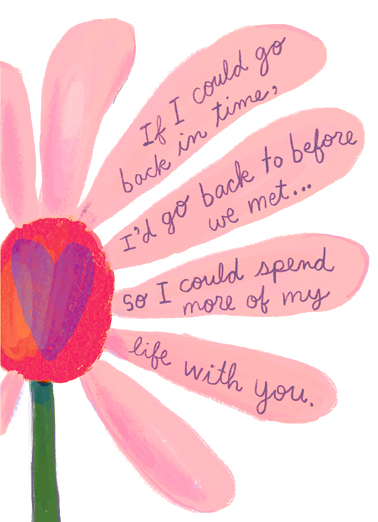 If I could go
back in time,
I'd go back to before
we met...
so I could spend
more of my
life with you.